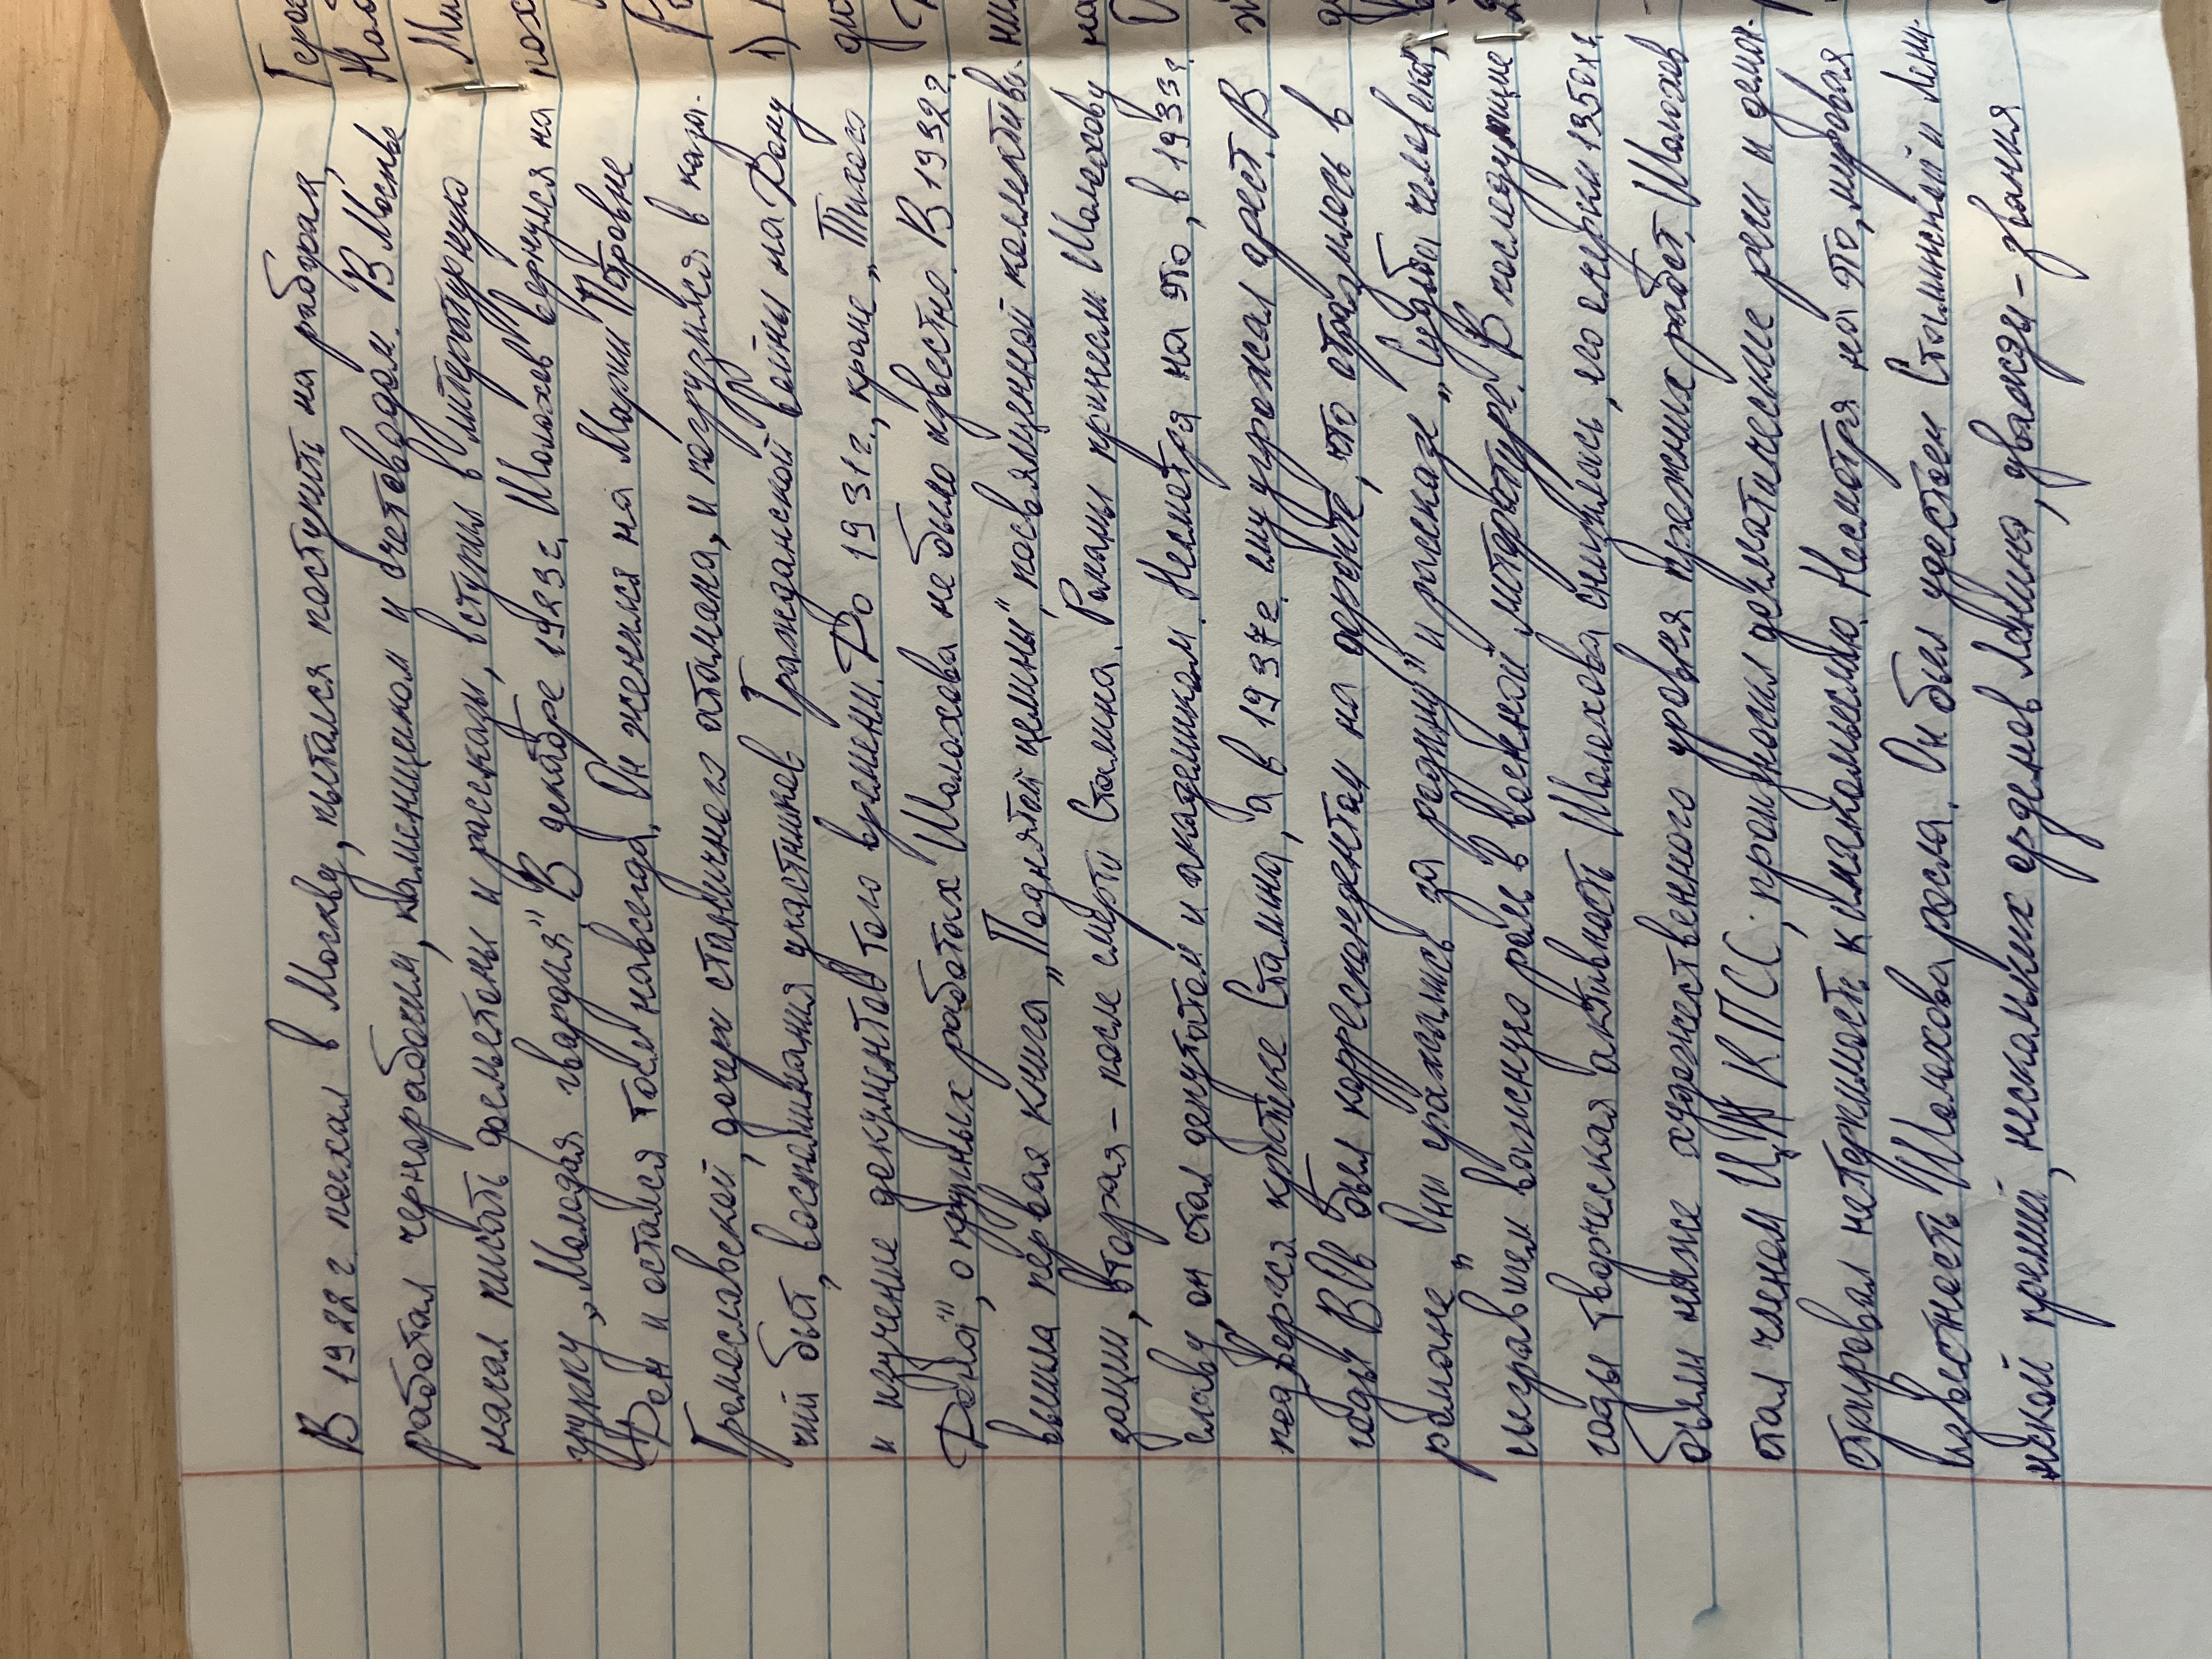 В 1922 г. поехал в Москву, пытался поступить на рабфак,
работал чернорабочим, каменщиком и счетоводом. В Москве
начал писать фельетоны и рассказы, вступил в литературную
группу „Молодая гвардия" В декабре 1923 г. Шолохов вернулся на
Дон и остался там навсегда. Он женился на Марии Петровне
Громославской, дочери станичного атамана, и погрузился в каза-
чий быт, воспоминания участников Гражданской войны на Дону
и изучение документов того времени. До 1931 г., кроме „Тихого
Дона", о крупных работах Шолохова не было известно. В 1932 г.
вышла первая книга „Поднятой целины", посвященной коллективи-
зации, вторая – после смерти Сталина. Романы принесли Шолохову
славу, он стал депутатом и академиком. Несмотря на это, в 1933 г.
подвергся критике Сталина, а в 1937 г. ему угрожал арест. В
годы ВОВ был корреспондентом на фронте, что отразилось в
романе „Они сражались за родину" и рассказе „Судьба человека",
сыгравшем важную роль в военной литературе. В последующие
годы творческая активность Шолохова снизилась, его очерки 1950-х г.
были ниже художественного уровня прежних работ. Шолохов
стал членом ЦК КПСС, произносил догматические речи и демон-
стрировал нетерпимость к инакомыслию. Несмотря на это, мировая
известность Шолохова росла. Он был удостоен Сталинской и Лени-
нской премий, нескольких орденов Ленина, дважды – звания